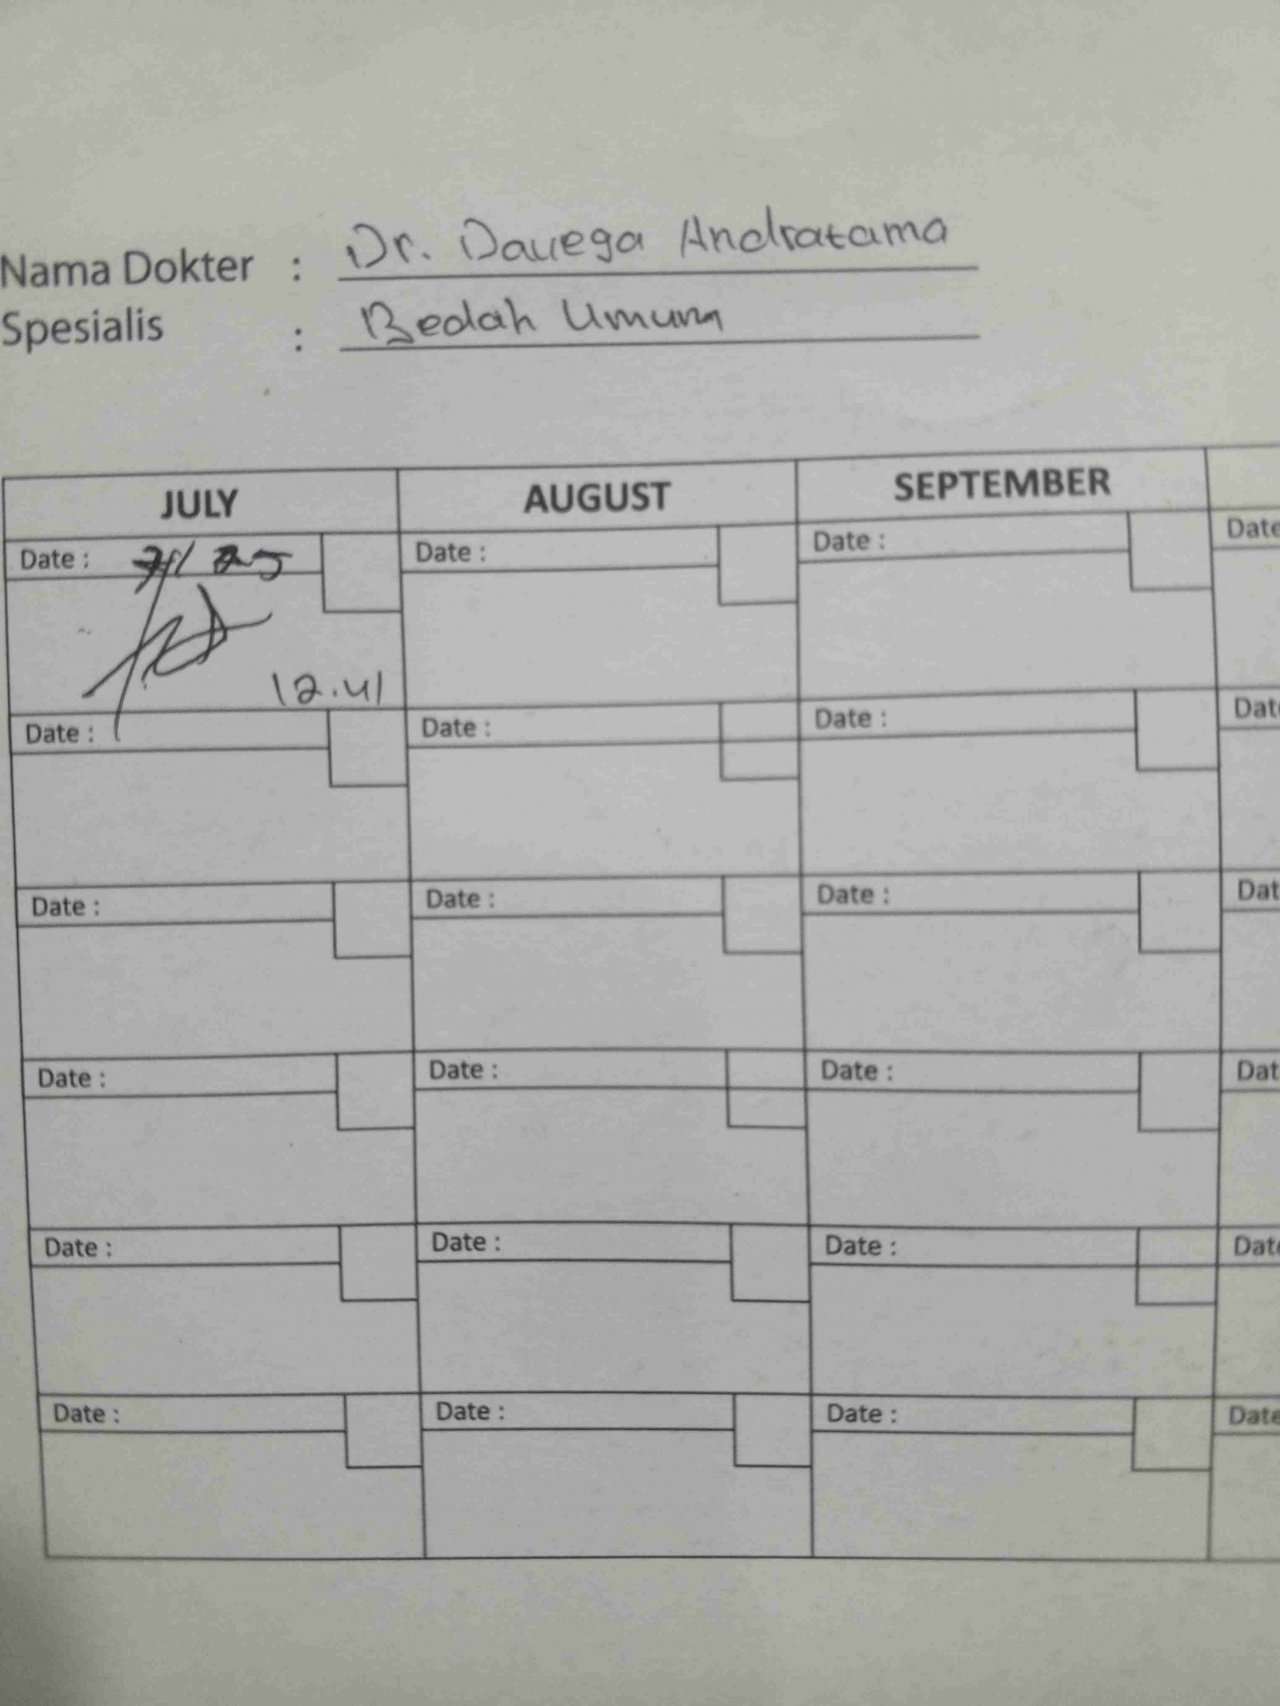 Nama Dokter : Dr. Davega Andratama
Spesialis : Bedah Umum
JULY AUGUST SEPTEMBER
Date : Date : Date : Date
12.41
Date : Date : Date : Dat
Date : Date : Date : Dat
Date : Date : Date : Dat
Date : Date : Date : Date
Date : Date : Date : Date